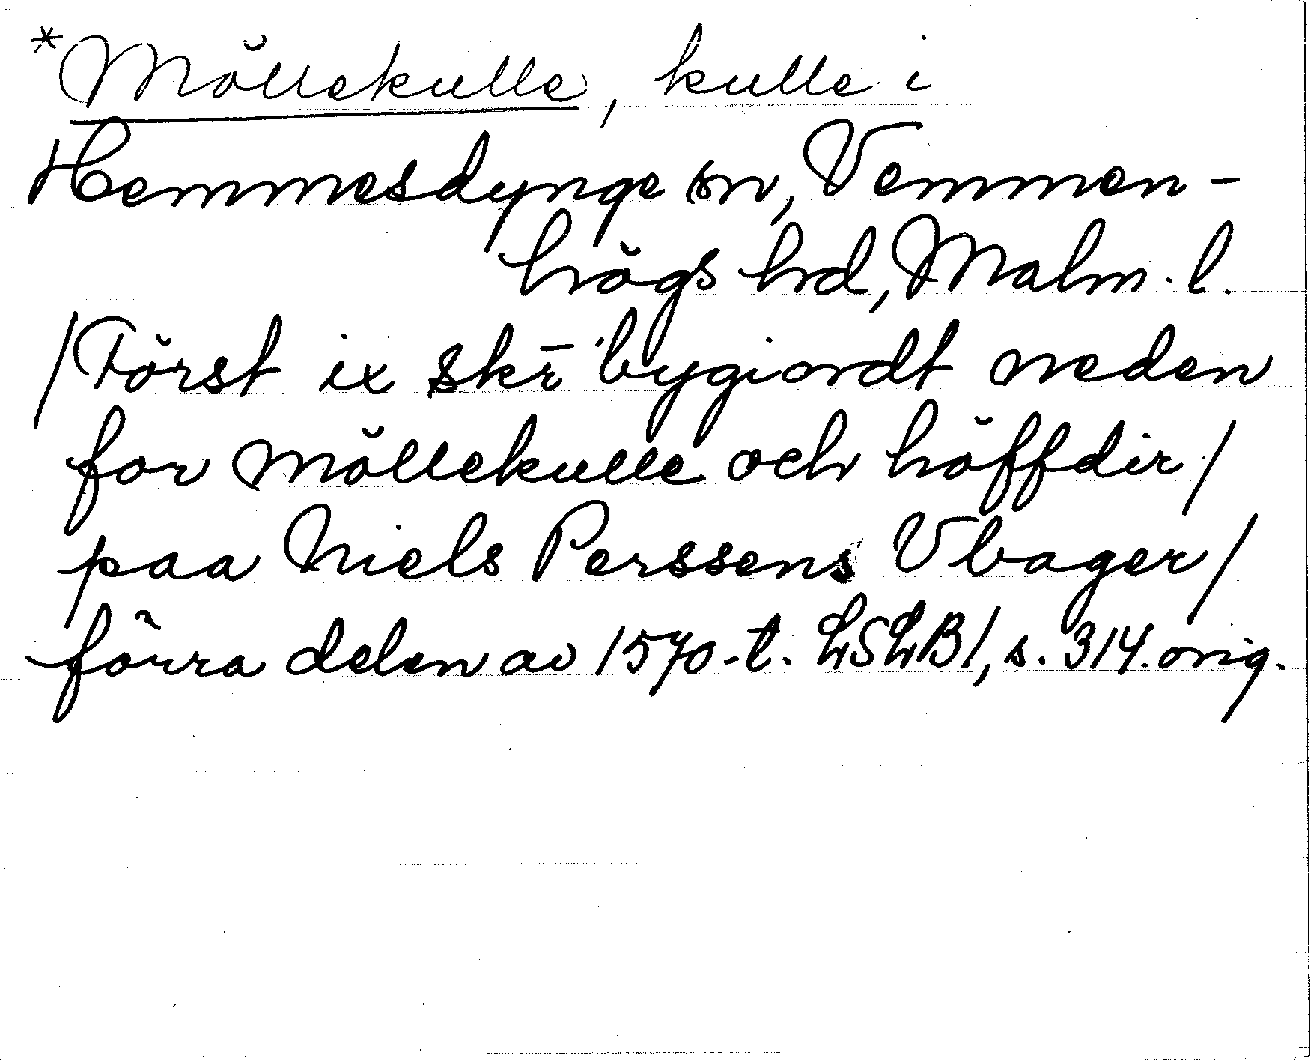 *Möllekulle, kulle i
Hemmesdynge sn, Vemmen-
högs hd, Malm. l.
/Först ix skr̄ bygiordt neden
for möllekulle och höffdir/
paa Niels Perssens Vbager/
förra delen av 1570-t. LSLB1, s. 314. orig.